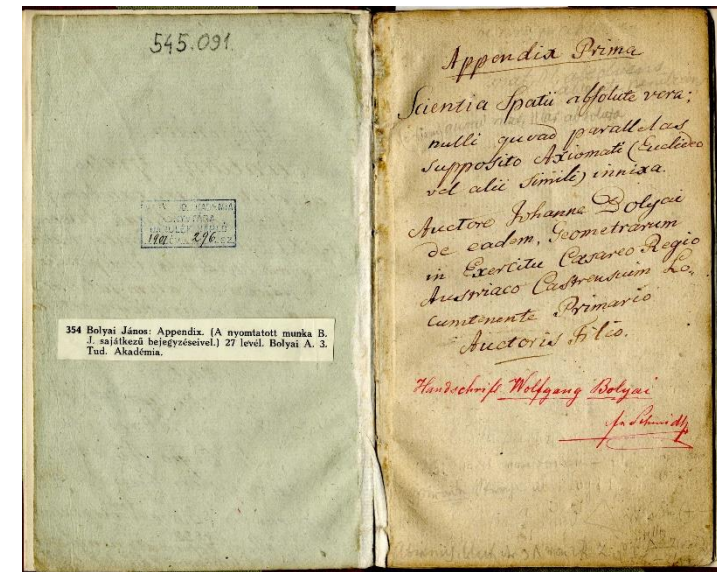 545.091.
KÖNYVTÁRA
1901 296. SZ.
354 Bolyai János: Appendix. (A nyomtatott munka B.
J. sajátkezű bejegyzéseivel.) 27 levél. Bolyai A. 3.
Tud. Akadémia.
Appendix Prima
Scientia Spatii absolute vera;
nulli quoad parallelas
supposito Axiomati (Euclideo
vel alii simili) innixa.
Auctore Johanne Bolyai
de eadem, Geometrarum
in Exercitu Caesareo Regio
Austriaco Castrensium Lo-
cumtenente Primario
Auctoris Filio.
Handschrift Wolfgang Bolyai
Fr. Schmidt